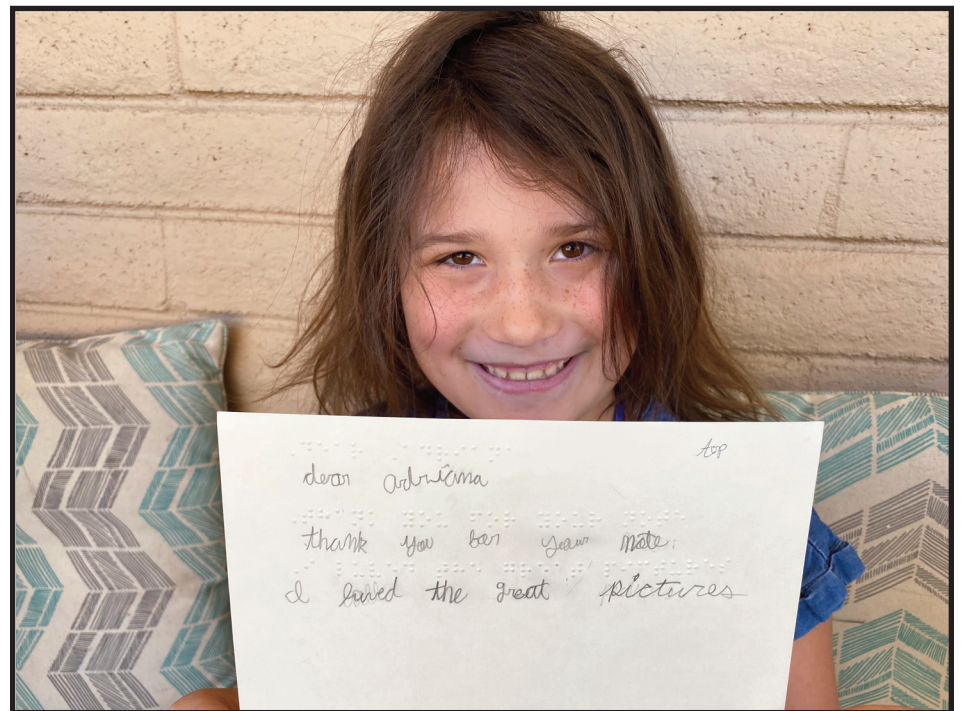 top
dear adriana
thank you for your note.
I loved the great pictures